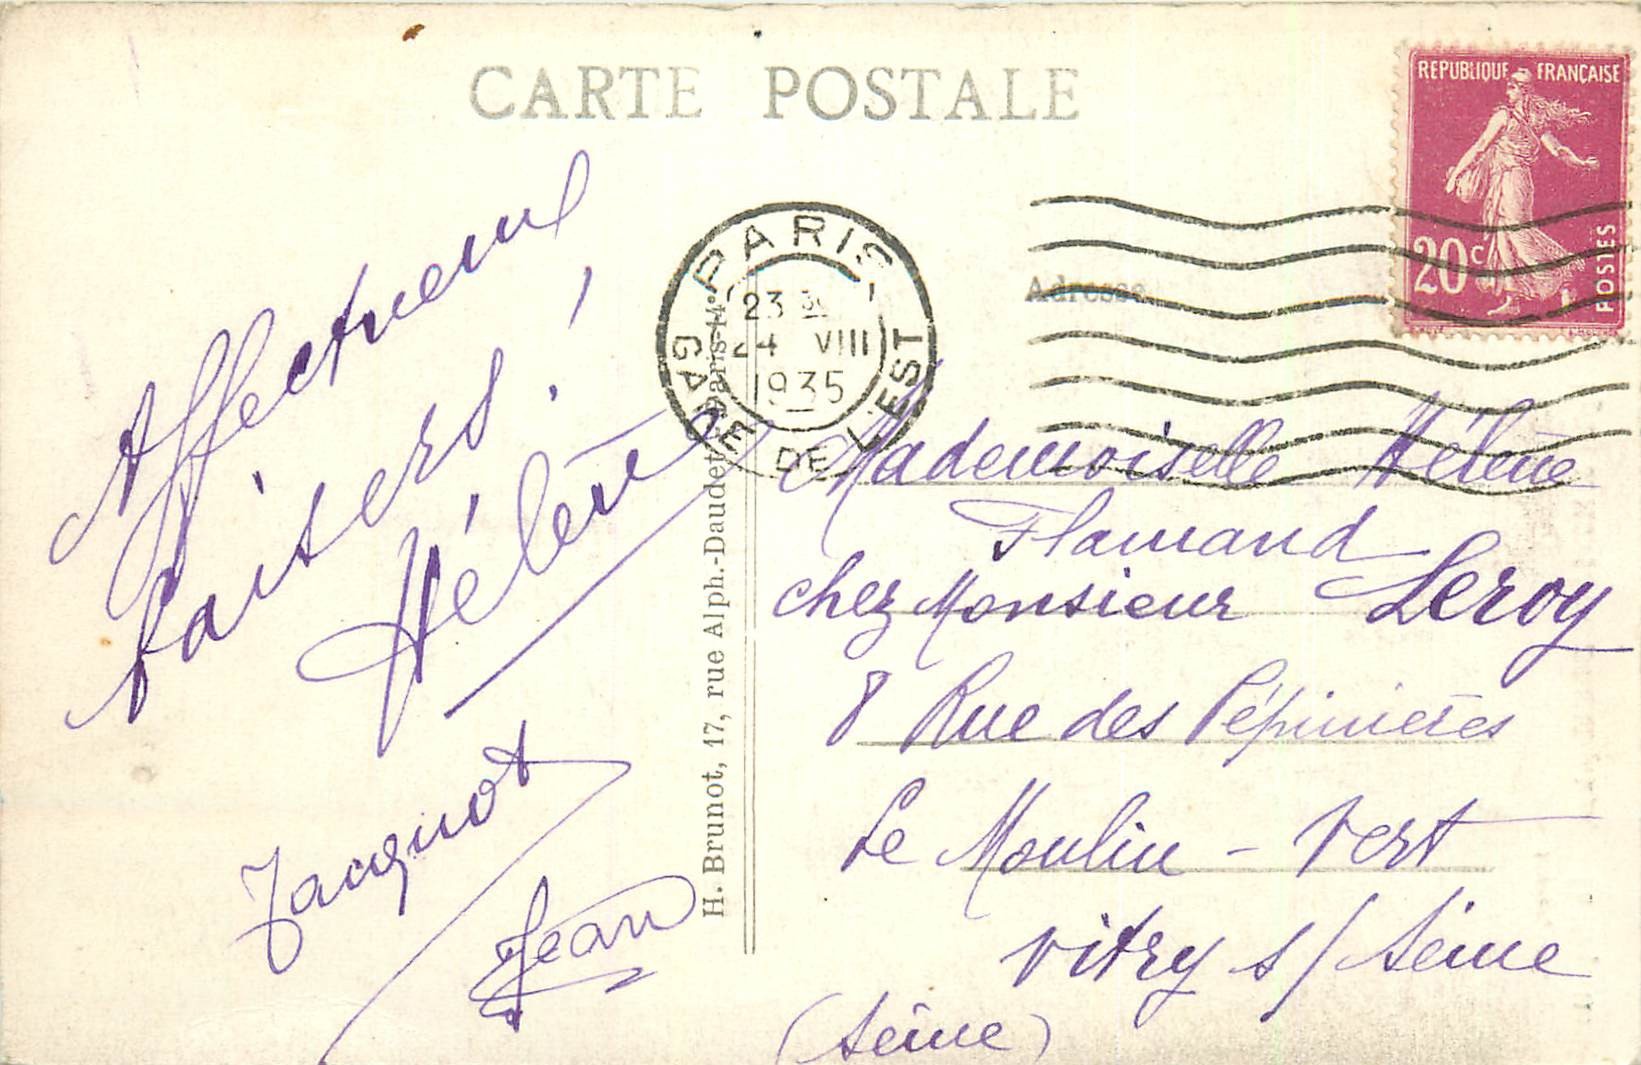 CARTE POSTALE
REPUBLIQUE FRANÇAISE
20 c
POSTES
PARIS
GARE DE L'EST
23
24 VIII
1935
Adresse
Affectueux
baisers !
Hélène
Jacquot
Jean
H. Brunot, 17, rue Alph.-Daudet - Paris-14e
Mademoiselle Hélène
Flamand
chez Monsieur Leroy
8 Rue des Pépinières
Le Moulin - Vert
Vitry s/ Seine
(Seine)